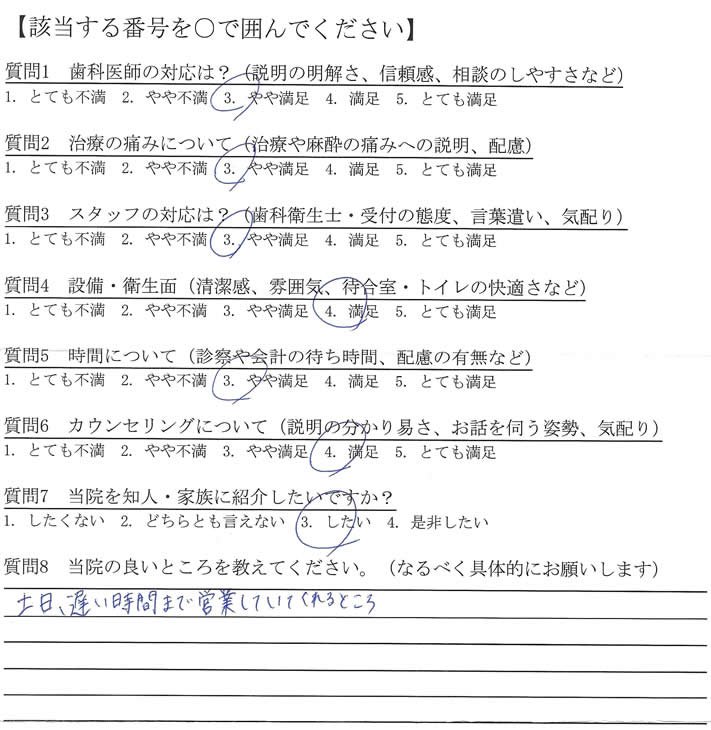 【該当する番号を〇で囲んでください】
質問1 歯科医師の対応は？（説明の明解さ、信頼感、相談のしやすさなど）
1. とても不満 2. やや不満 3. やや満足 4. 満足 5. とても満足
質問2 治療の痛みについて（治療や麻酔の痛みへの説明、配慮）
1. とても不満 2. やや不満 3. やや満足 4. 満足 5. とても満足
質問3 スタッフの対応は？（歯科衛生士・受付の態度、言葉遣い、気配り）
1. とても不満 2. やや不満 3. やや満足 4. 満足 5. とても満足
質問4 設備・衛生面（清潔感、雰囲気、待合室・トイレの快適さなど）
1. とても不満 2. やや不満 3. やや満足 4. 満足 5. とても満足
質問5 時間について（診察や会計の待ち時間、配慮の有無など）
1. とても不満 2. やや不満 3. やや満足 4. 満足 5. とても満足
質問6 カウンセリングについて（説明の分かり易さ、お話を伺う姿勢、気配り）
1. とても不満 2. やや不満 3. やや満足 4. 満足 5. とても満足
質問7 当院を知人・家族に紹介したいですか？
1. したくない 2. どちらとも言えない 3. したい 4. 是非したい
質問8 当院の良いところを教えてください。（なるべく具体的にお願いします）
土日、遅い時間まで営業していてくれるところ